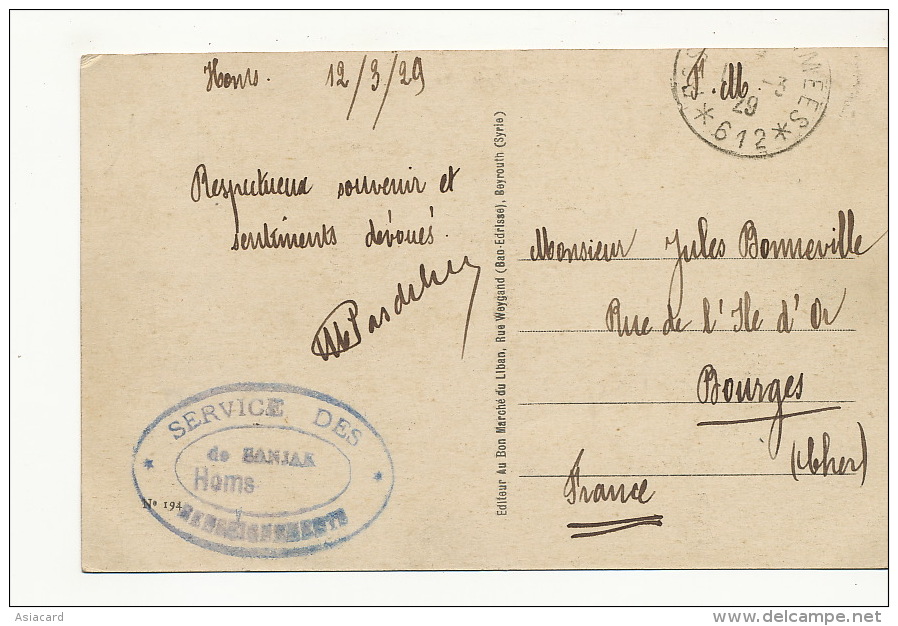 Homs. 12/3/29
F.M.
29 -3
*612*
Respectueux souvenir et
sentiments dévoués.
Monsieur Jules Bonneville
Rue de l'Ile d'Or
Bourges
(Cher)
France
Editeur Au Bon Marché du Liban, Rue Weygand (Bab-Edrisse), Beyrouth (Syrie)
SERVICE DES
de SANJAK
Homs
RENSEIGNEMENTS
Nº 194
Asiacard
www.delcampe.net